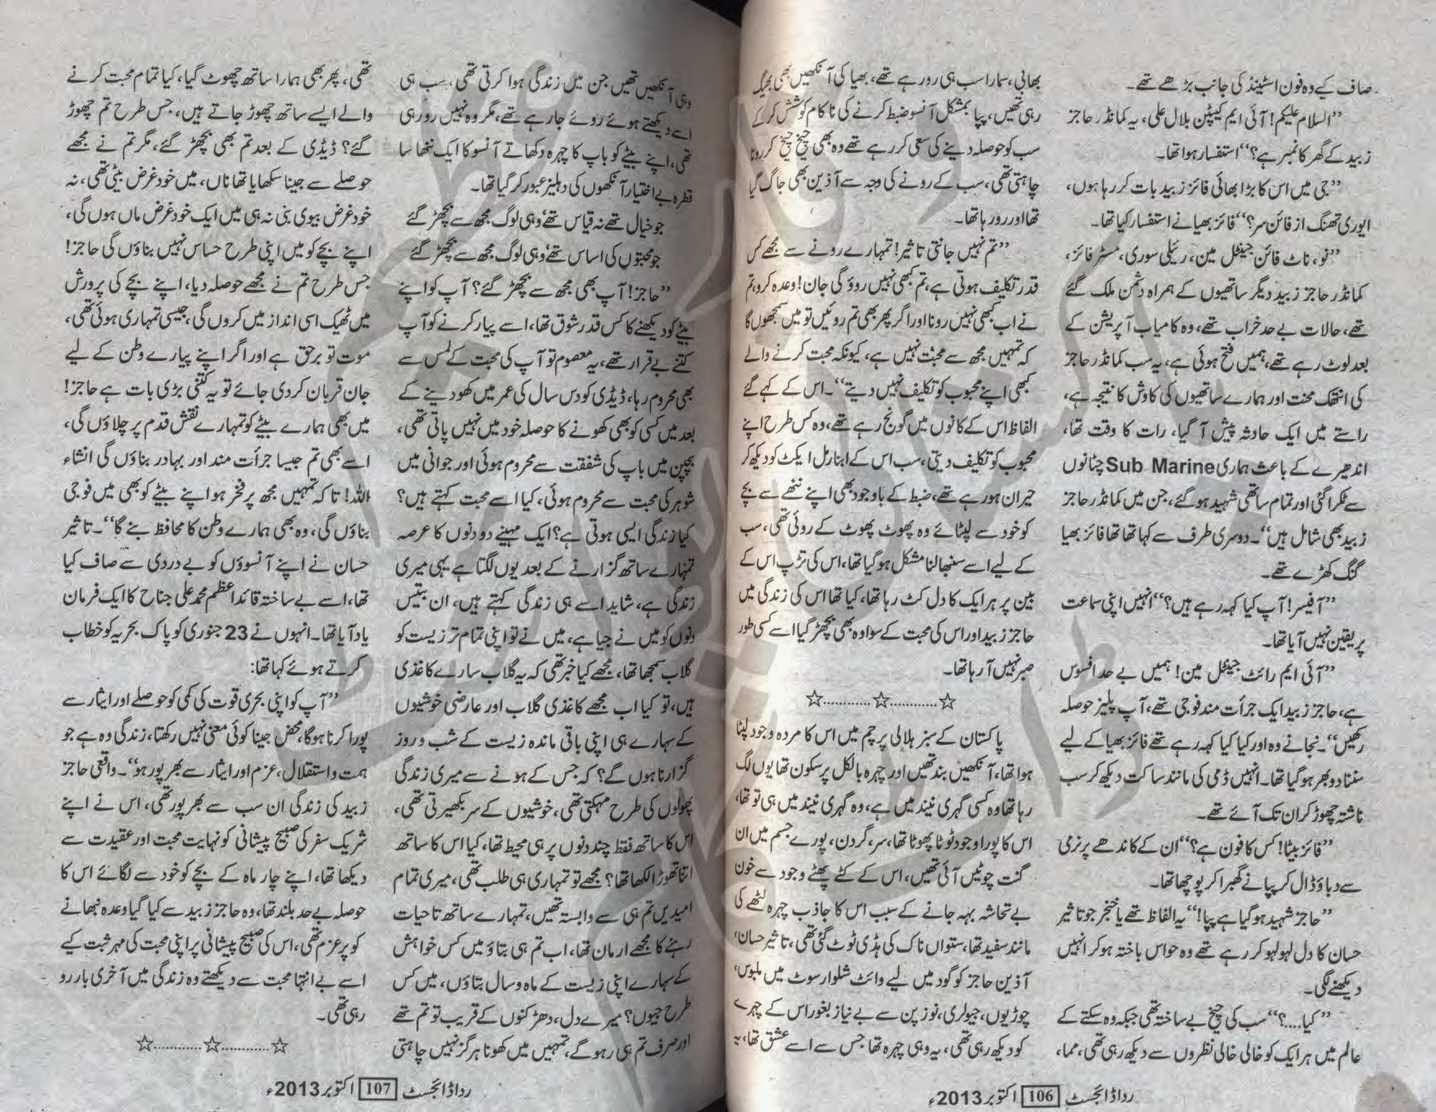 صاف کیے وہ فون اسٹینڈ کی جانب بڑھے تھے۔
”السلام علیکم! آئی ایم کیپٹن بلال علی، یہ کمانڈر حاجز
زبید کے گھر کا نمبر ہے؟“ استفسار ہوا تھا۔
”جی میں اس کا بڑا بھائی فائز زبید بات کر رہا ہوں،
ایوری تھنگ از فائن سر؟“ فائز بھیا نے استفسار کیا تھا۔
”نو، ناٹ فائن جینٹل مین، رئیلی سوری، مسٹر فائز،
کمانڈر حاجز زبید دیگر ساتھیوں کے ہمراہ دشمن ملک گئے
تھے، حالات بے حد خراب تھے، وہ کامیاب آپریشن کے
بعد لوٹ رہے تھے، ہمیں فتح ہوئی ہے، یہ سب کمانڈر حاجز
کی انتھک محنت اور ہمارے ساتھیوں کی کاوش کا نتیجہ ہے،
راستے میں ایک حادثہ پیش آ گیا، رات کا وقت تھا،
اندھیرے کے باعث ہماری Sub Marine چٹانوں
سے ٹکرا گئی اور تمام ساتھی شہید ہو گئے، جن میں کمانڈر حاجز
زبید بھی شامل ہیں“۔ دوسری طرف سے کہا تھا فائز بھیا
گنگ کھڑے تھے۔
”آفیسر! آپ کیا کہہ رہے ہیں؟“ انہیں اپنی سماعت
پر یقین نہیں آیا تھا۔
”آئی ایم رائٹ جینٹل مین! ہمیں بے حد افسوس
ہے، حاجز زبید ایک جرأت مند فوجی تھے، آپ پلیز حوصلہ
رکھیں“۔ نجانے وہ اور کیا کیا کہہ رہے تھے فائز بھیا کے لیے
سننا دوبھر ہو گیا تھا۔ انہیں ڈمی کی مانند ساکت دیکھ کر سب
ناشتہ چھوڑ کر ان تک آئے تھے۔
”فائز بیٹا! کس کا فون ہے؟“ ان کے کاندھے پر نرمی
سے دباؤ ڈال کر پپا نے گھبرا کر پوچھا تھا۔
”حاجز شہید ہو گیا ہے پپا!“ یہ الفاظ تھے یا خنجر جو تاثیر
حسان کا دل لہو لہو کر رہے تھے وہ حواس باختہ ہو کر انہیں
دیکھنے لگی۔
”کیا....؟“ سب کی چیخ بے ساختہ تھی جبکہ وہ سکتے کے
عالم میں ہر ایک کو خالی خالی نظروں سے دیکھ رہی تھی، مما،
بھابی، سارا سب ہی رو رہے تھے، بھیا کی آنکھیں بھی بھیگ
رہی تھیں، پپا بمشکل آنسو ضبط کرنے کی ناکام کوشش کر کے
سب کو حوصلہ دینے کی سعی کر رہے تھے وہ بھی چیخ چیخ کر رونا
چاہتی تھی، سب کے رونے کی وجہ سے آذین بھی جاگ گیا
تھا اور رو رہا تھا۔
”تم نہیں جانتی تاثیر! تمہارے رونے سے مجھے کس
قدر تکلیف ہوتی ہے، تم کبھی نہیں روؤ گی جان! وعدہ کرو، تم
نے اب کبھی نہیں رونا اور اگر پھر بھی تم روئیں تو میں سمجھوں گا
کہ تمہیں مجھ سے محبت نہیں ہے، کیونکہ محبت کرنے والے
کبھی اپنے محبوب کو تکلیف نہیں دیتے“۔ اس کے کہے گئے
الفاظ اس کے کانوں میں گونج رہے تھے، وہ کس طرح اپنے
محبوب کو تکلیف دیتی، سب اس کے ابنارمل ایکٹ کو دیکھ کر
حیران ہو رہے تھے، ضبط کے باوجود بھی اپنے ننھے سے بچے
کو خود سے لپٹائے وہ پھوٹ پھوٹ کے روئی تھی، سب
کے لیے اسے سنبھالنا مشکل ہو گیا تھا، اس کی تڑپ اس کے
بین پر ہر ایک کا دل کٹ رہا تھا، کیا تھا اس کی زندگی میں
حاجز زبید اور اس کی محبت کے سوا وہ بھی بچھڑ گیا اسے کسی طور
صبر نہیں آ رہا تھا۔
☆............☆............☆
پاکستان کے سبز ہلالی پرچم میں اس کا مردہ وجود لپٹا
ہوا تھا، آنکھیں بند تھیں اور چہرہ بالکل پرسکون تھا یوں لگ
رہا تھا وہ کسی گہری نیند میں ہے، وہ گہری نیند میں ہی تو تھا،
اس کا پورا وجود ٹوٹا پھوٹا تھا، سر، گردن، پورے جسم میں ان
گنت چوٹیں آئی تھیں، اس کے کٹے پھٹے وجود سے خون
بے تحاشہ بہہ جانے کے سبب اس کا جاذب چہرہ لٹھے کی
مانند سفید تھا، ستواں ناک کی ہڈی ٹوٹ گئی تھی، تاثیر حسان،
آذین حاجز کو گود میں لیے وائٹ شلوار سوٹ میں ملبوس،
چوڑیوں، جیولری، نوز پن سے بے نیاز بغور اس کے چہرے
کو دیکھ رہی تھی، یہ وہی چہرہ تھا جس سے اسے عشق تھا، یہ
رداڈائجسٹ 106 اکتوبر 2013ء
وہی آنکھیں تھیں جن میں زندگی ہوا کرتی تھی، سب ہی
اسے دیکھتے ہوئے روئے جا رہے تھے، مگر وہ نہیں رو رہی
تھی، اپنے بیٹے کو باپ کا چہرہ دکھاتے آنسو کا ایک ننھا سا
قطرہ بے اختیار آنکھوں کی دہلیز عبور کر گیا تھا۔
جو خیال تھے نہ قیاس تھے وہی لوگ مجھ سے بچھڑ گئے
جو محبتوں کی اساس تھے وہی لوگ مجھ سے بچھڑ گئے
”حاجز! آپ بھی مجھ سے بچھڑ گئے؟ آپ کو اپنے
بیٹے کو دیکھنے کا کس قدر شوق تھا، اسے پیار کرنے کو آپ
کتنے بے قرار تھے، یہ معصوم تو آپ کی محبت کے لمس سے
بھی محروم رہا، ڈیڈی کو دس سال کی عمر میں کھو دینے کے
بعد میں کسی کو بھی کھونے کا حوصلہ خود میں نہیں پاتی تھی،
بچپن میں باپ کی شفقت سے محروم ہوئی اور جوانی میں
شوہر کی محبت سے محروم ہوئی، کیا اسے محبت کہتے ہیں؟
کیا زندگی ایسی ہوتی ہے؟ ایک مہینے دو دنوں کا عرصہ
تمہارے ساتھ گزارنے کے بعد یوں لگتا ہے یہی میری
زندگی ہے، شاید اسے ہی زندگی کہتے ہیں، ان بتیس
دنوں کو میں نے جیا ہے، میں نے تو اپنی تمام تر زیست کو
گلاب سمجھا تھا، مجھے کیا خبر تھی کہ یہ گلاب سارے کاغذی
ہیں، تو کیا اب مجھے کاغذی گلاب اور عارضی خوشیوں
کے سہارے ہی اپنی باقی ماندہ زیست کے شب و روز
گزارنا ہوں گے؟ کہ جس کے ہونے سے میری زندگی
پھولوں کی طرح مہکتی تھی، خوشیوں کے سر بکھیرتی تھی،
اس کا ساتھ فقط چند دنوں پر ہی محیط تھا، کیا اس کا ساتھ
اتنا تھوڑا لکھا تھا؟ مجھے تو تمہاری ہی طلب تھی، میری تمام
امیدیں تم ہی سے وابستہ تھیں، تمہارے ساتھ تا حیات
رہنے کا مجھے ارمان تھا، اب تم ہی بتاؤ میں کس خواہش
کے سہارے اپنی زیست کے ماہ و سال بتاؤں، میں کس
طرح جیوں؟ میرے دل، دھڑکنوں کے قریب تو تم تھے
اور صرف تم ہی رہو گے، تمہیں میں کھونا ہرگز نہیں چاہتی
تھی، پھر بھی ہمارا ساتھ چھوٹ گیا، کیا تمام محبت کرنے
والے ایسے ساتھ چھوڑ جاتے ہیں، جس طرح تم چھوڑ
گئے؟ ڈیڈی کے بعد تم بھی بچھڑ گئے، مگر تم نے مجھے
حوصلے سے جینا سکھایا تھا ناں، میں خود غرض بیٹی تھی، نہ
خود غرض بیوی بنی نہ ہی میں ایک خود غرض ماں ہوں گی،
اپنے بچے کو میں اپنی طرح حساس نہیں بناؤں گی حاجز!
جس طرح تم نے مجھے حوصلہ دیا، اپنے بچے کی پرورش
میں ٹھیک اسی انداز میں کروں گی، جیسی تمہاری ہوئی تھی،
موت تو برحق ہے اور اگر اپنے پیارے وطن کے لیے
جان قربان کر دی جائے تو یہ کتنی بڑی بات ہے حاجز!
میں بھی ہمارے بیٹے کو تمہارے نقش قدم پر چلاؤں گی،
اسے بھی تم جیسا جرأت مند اور بہادر بناؤں گی انشاء
اللہ! تا کہ تمہیں مجھ پر فخر ہو اپنے بیٹے کو بھی میں فوجی
بناؤں گی، وہ بھی ہمارے وطن کا محافظ بنے گا“۔ تاثیر
حسان نے اپنے آنسوؤں کو بے دردی سے صاف کیا
تھا، اسے بے ساختہ قائداعظم محمد علی جناح کا ایک فرمان
یاد آیا تھا۔ انہوں نے 23 جنوری کو پاک بحریہ کو خطاب
کرتے ہوئے کہا تھا:
”آپ کو اپنی بحری قوت کی کمی کو حوصلے اور ایثار سے
پورا کرنا ہو گا، محض جینا کوئی معنی نہیں رکھتا، زندگی وہ ہے جو
ہمت و استقلال، عزم اور ایثار سے بھرپور ہو“۔ واقعی حاجز
زبید کی زندگی ان سب سے بھرپور تھی، اس نے اپنے
شریک سفر کی صبیح پیشانی کو نہایت محبت اور عقیدت سے
دیکھا تھا، اپنے چار ماہ کے بچے کو خود سے لگائے اس کا
حوصلہ بے حد بلند تھا، وہ حاجز زبید سے کیا گیا وعدہ نبھانے
کو پرعزم تھی، اس کی صبیح پیشانی پر اپنی محبت کی مہر ثبت کیے
اسے بے انتہا محبت سے دیکھتے وہ زندگی میں آخری بار رو
رہی تھی۔
☆............☆............☆
رداڈائجسٹ 107 اکتوبر 2013ء